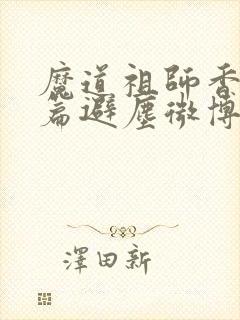 魔道祖師香
篇避塵微博
澤田新